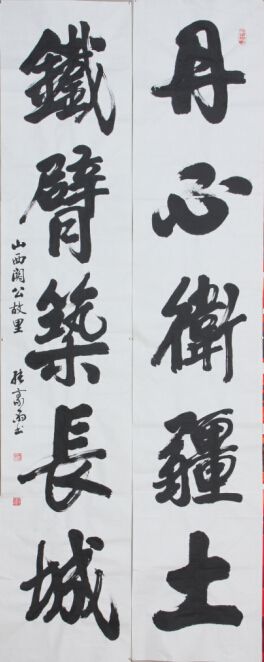 丹心衛疆土
鐵臂築長城
山西關公故里